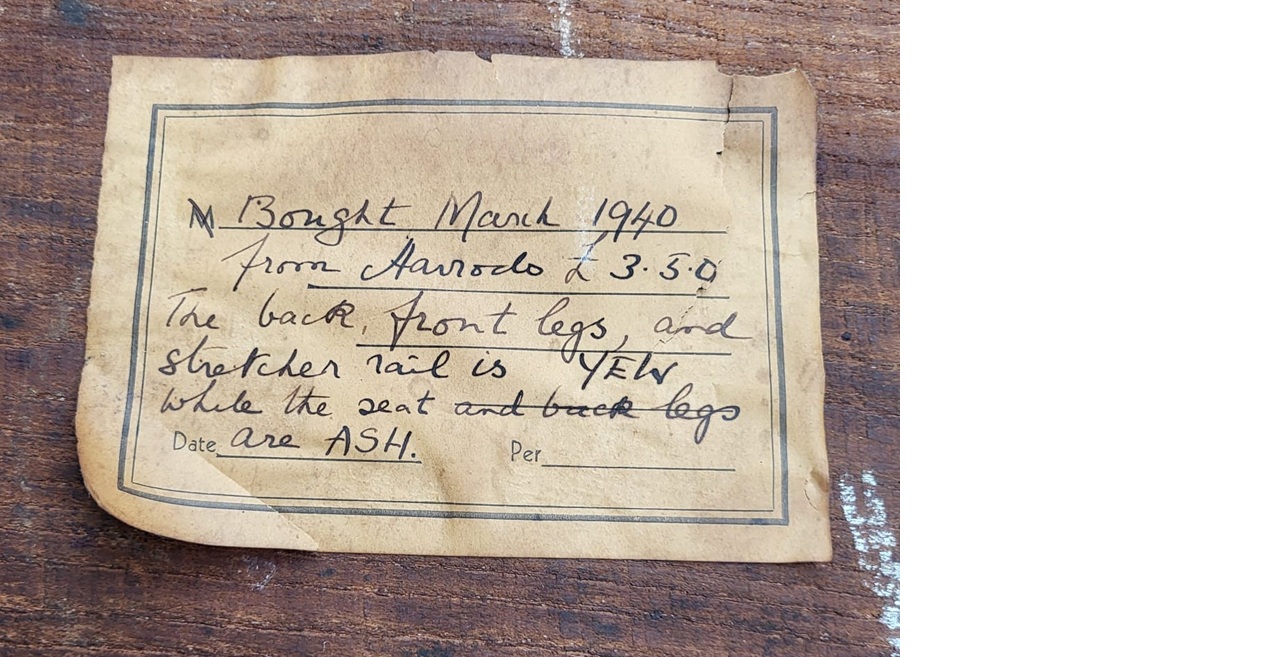 Bought March 1940
from Harrods £3.5.0
The back, front legs, and
stretcher rail is YEW
while the seat and back legs
Date are ASH. Per